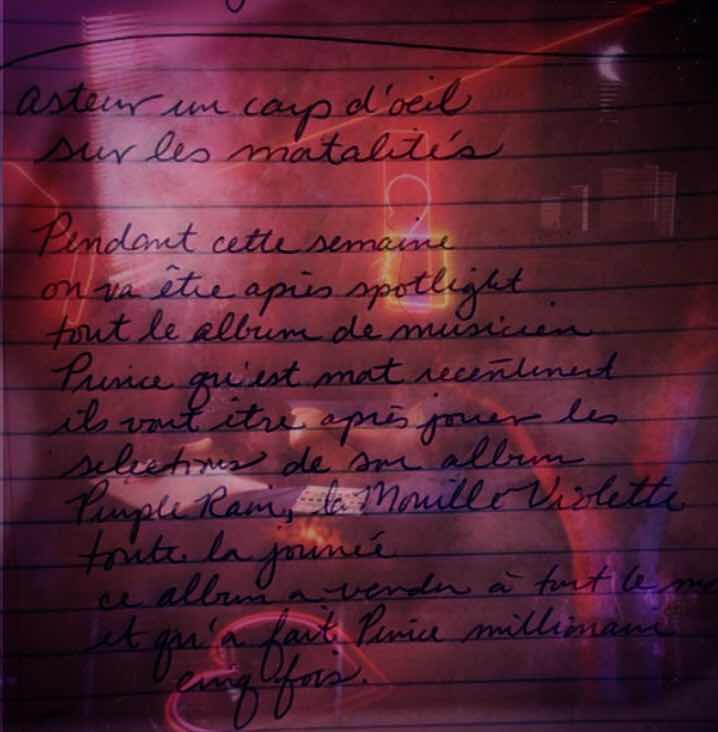 asteur un coup d'oeil
sur les matalités
Pendant cette semaine
on va être après spotlight
tout le album de musicien
Prince qu'est mot recentment
ils vont être après jouer les
selections de son album
Purple Rain, la Mouille Violette
toute la journée
ce album a vendu à tout le
et qu'a fait Prince millionaire
cinq fois.